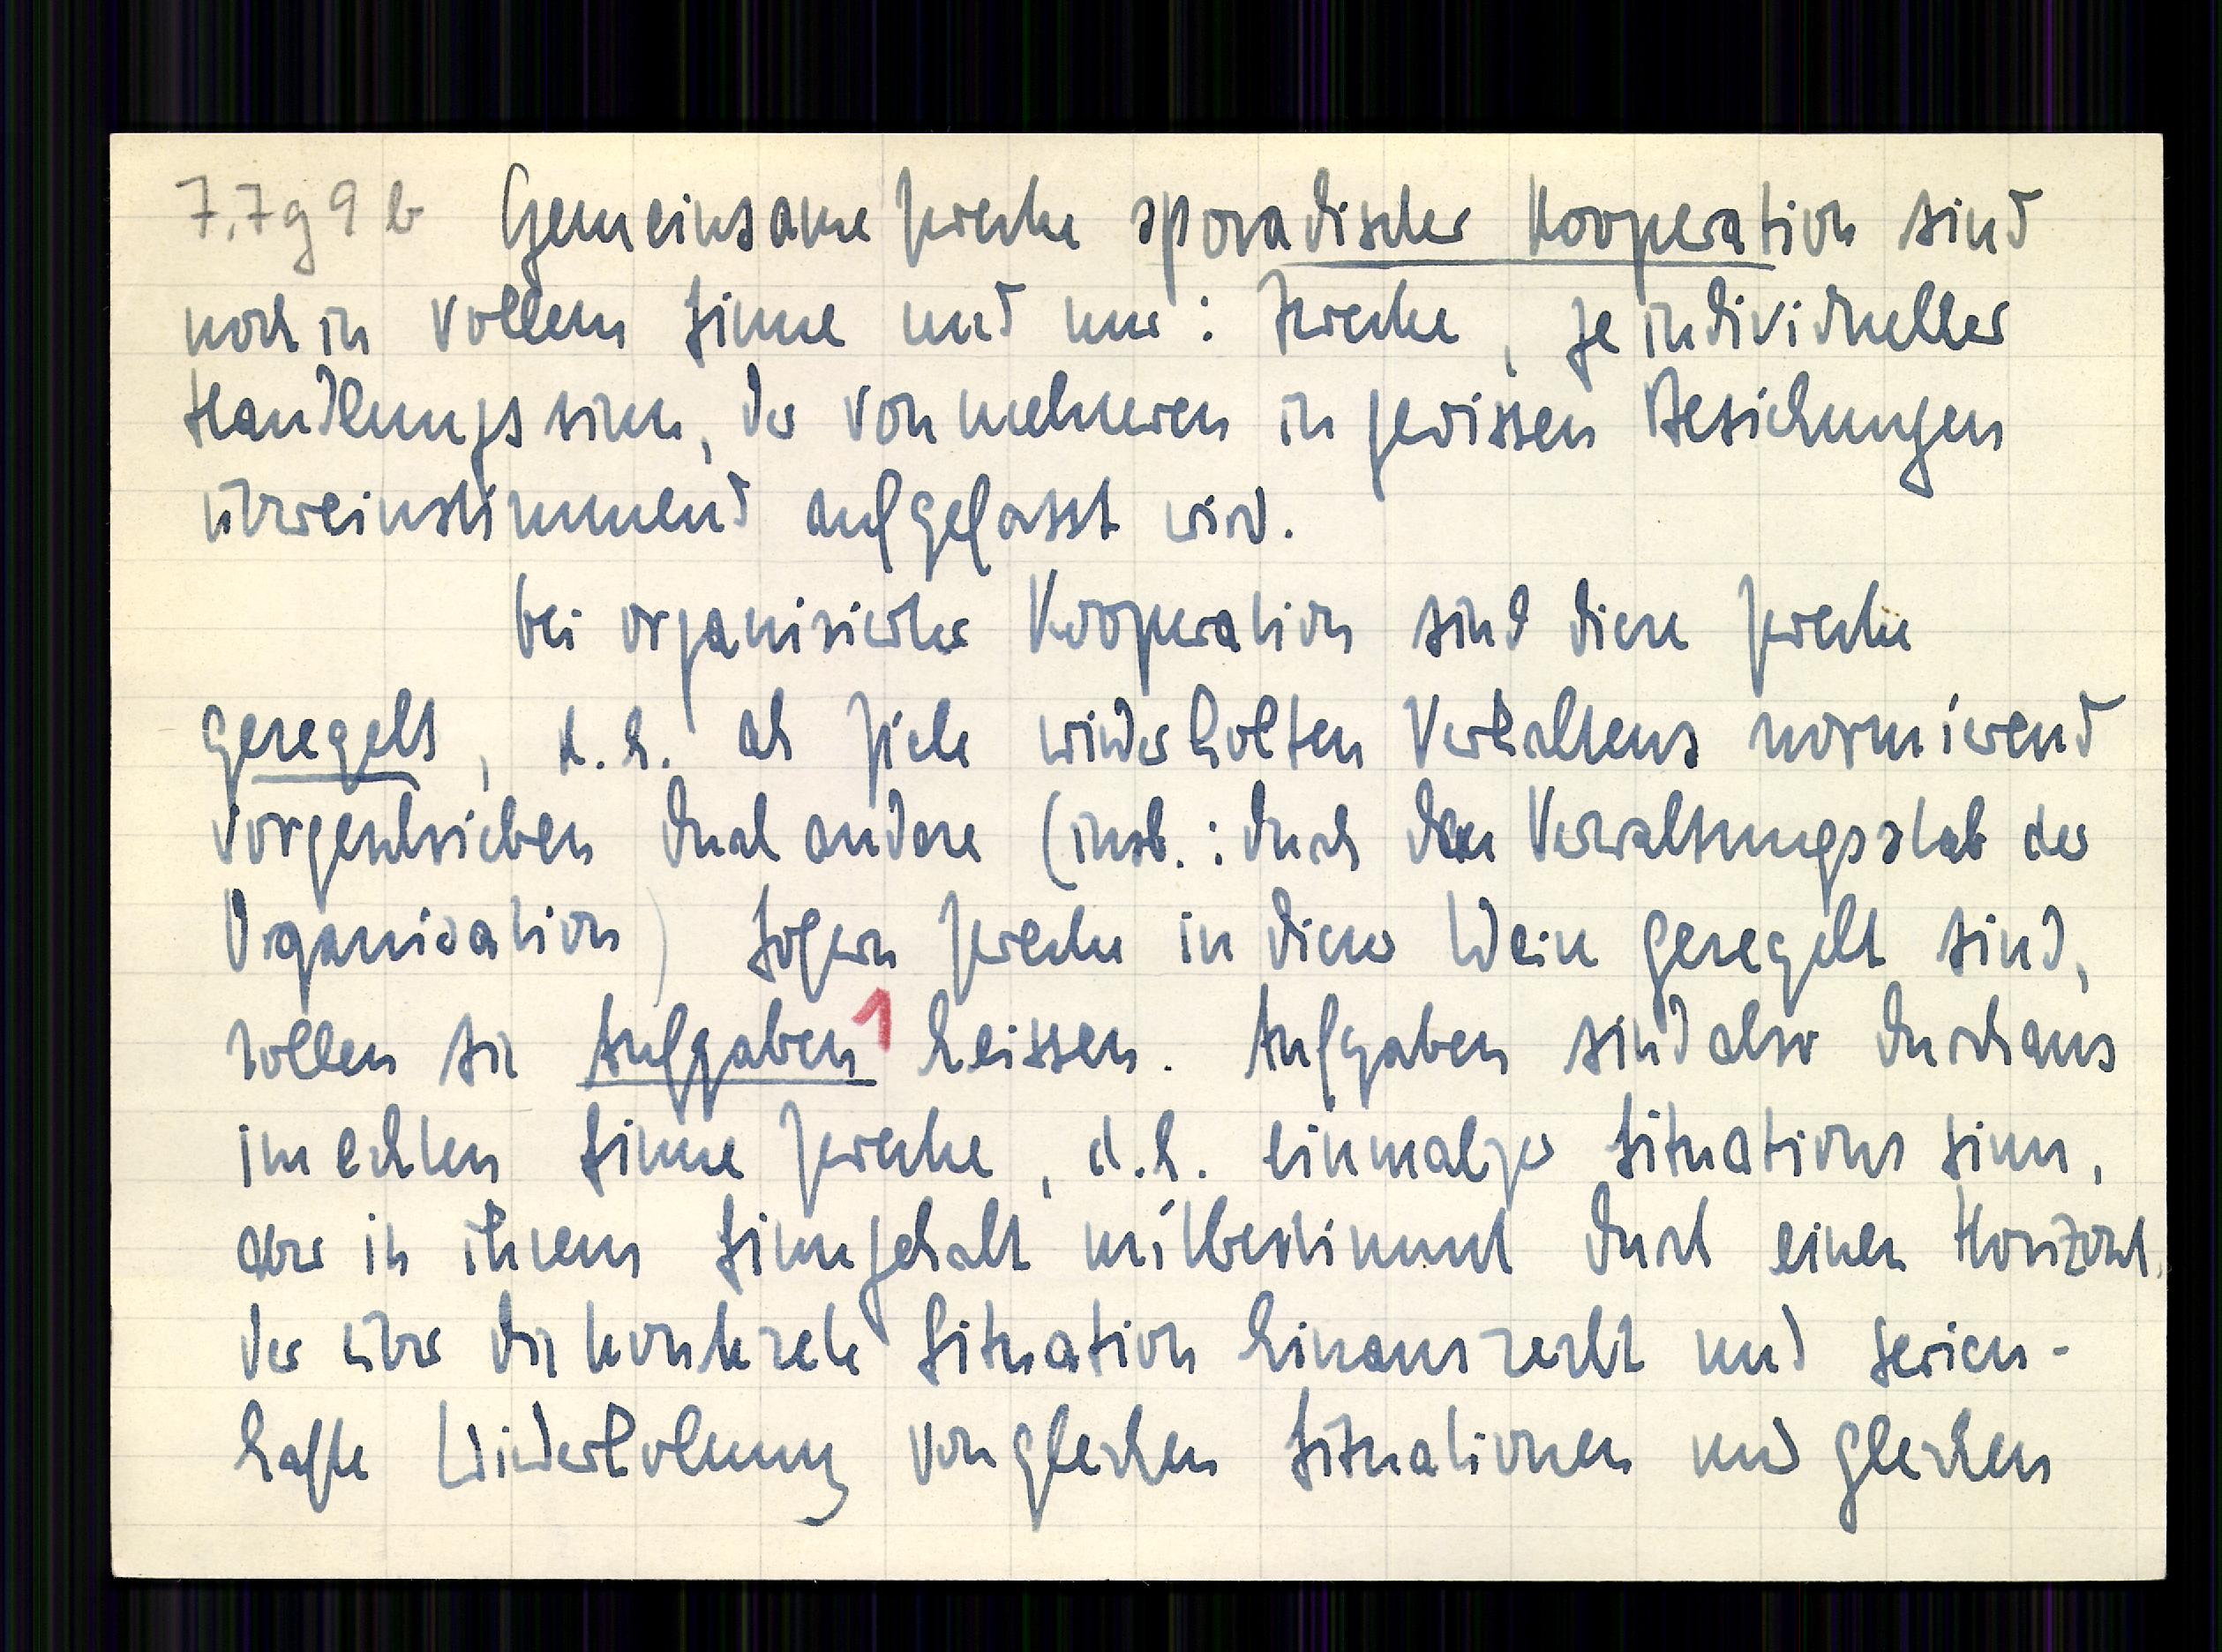 7,7g9b Gemeinsame Zwecke sporadischer Kooperation sind
noch in vollem Sinne und nur: Zwecke, je individueller
Handlungssinn, der von mehreren in gewissen Beziehungen
übereinstimmend aufgefasst wird.
Bei organisierter Kooperation sind diese Zwecke
geregelt, d.h. als Ziele wiederholten Verhaltens normierend
vorgeschrieben durch andere (insb.: durch den Verwaltungsstab der
Organisation) Sofern Zwecke in dieser Weise geregelt sind,
sollen sie Aufgaben 1 heissen. Aufgaben sind also durchaus
im echten Sinne Zwecke, d.h. einmaliger Situationssinn,
aber in ihrem Sinngehalt mitbestimmt durch einen Horizont,
der über die konkrete Situation hinausreicht und serien-
hafte Wiederholung von gleichen Situationen und gleichen